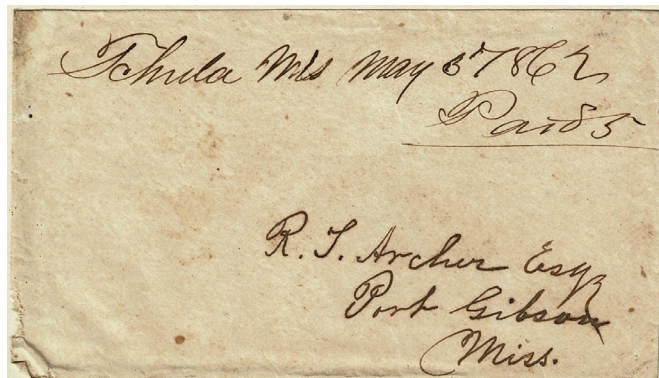 Tchula Mis May 5 1862
Paid 5
R. T. Archer Esq
Port Gibson
Miss.